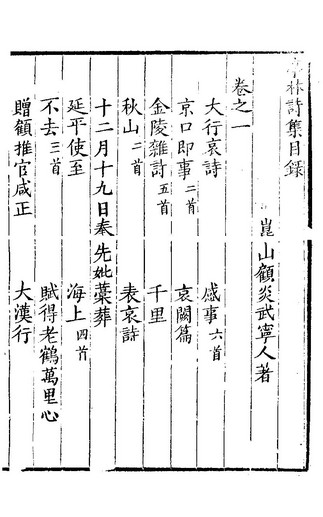 亭林詩集目録
崑山顧炎武寧人著
卷之一
大行哀詩 感事六首
京口即事二首 哀闕篇
金陵雜詩五首 千里
秋山二首 表哀詩
十二月十九日奉先妣藁葬
延平使至 海上四首
不去三首 賦得老鶴萬里心
贈顧推官咸正 大漢行